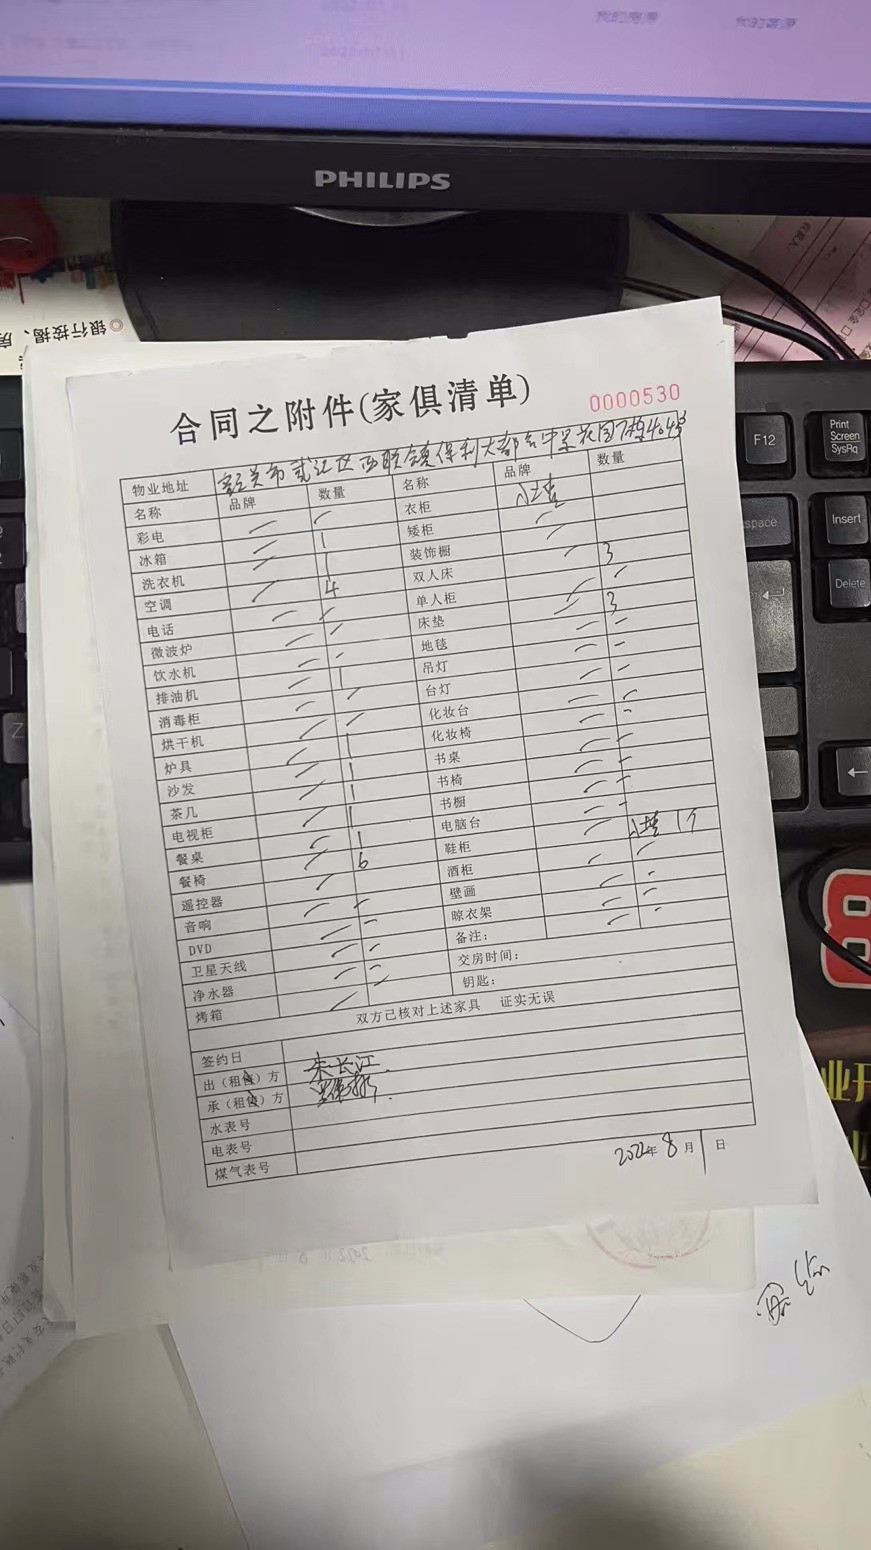 我的房源 我的客源
PHILIPS
银行按揭、房
合同之附件(家俱清单)
0000530
物业地址 韶关市武江区西联镇保利大都会中景花园7栋404号
名称 品牌 数量 名称 品牌 数量
彩电 衣柜
冰箱 1 矮柜
洗衣机 1 装饰橱
空调 4 双人床 3
电话 单人柜
微波炉 床垫 3
饮水机 地毯
排油机 1 吊灯
消毒柜 台灯
烘干机 化妆台
炉具 1 化妆椅
沙发 1 书桌
茶几 1 书椅
电视柜 1 书橱
餐桌 1 电脑台
餐椅 6 鞋柜 1个
遥控器 酒柜
音响 壁画
DVD 晾衣架
卫星天线 备注:
净水器 交房时间:
烤箱 钥匙:
双方已核对上述家具 证实无误
签约日
出(租售)方 朱长江
承(租售)方
水表号
电表号
煤气表号
2022年8月1日
F12
Print
Screen
SysRq
Insert
Delete
Z
8
业开